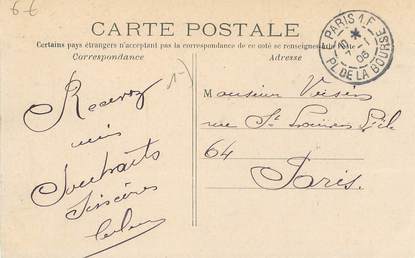 6 €
CARTE POSTALE
Certains pays étrangers n'acceptant pas la correspondance de ce coté se renseigner à la Poste
Correspondance
Adresse
PARIS 1. F.
7 - 1
06
PL. DE LA BOURSE
Recevez
mes
Souhaits
Sincères
Monsieur
rue St
64
Paris.